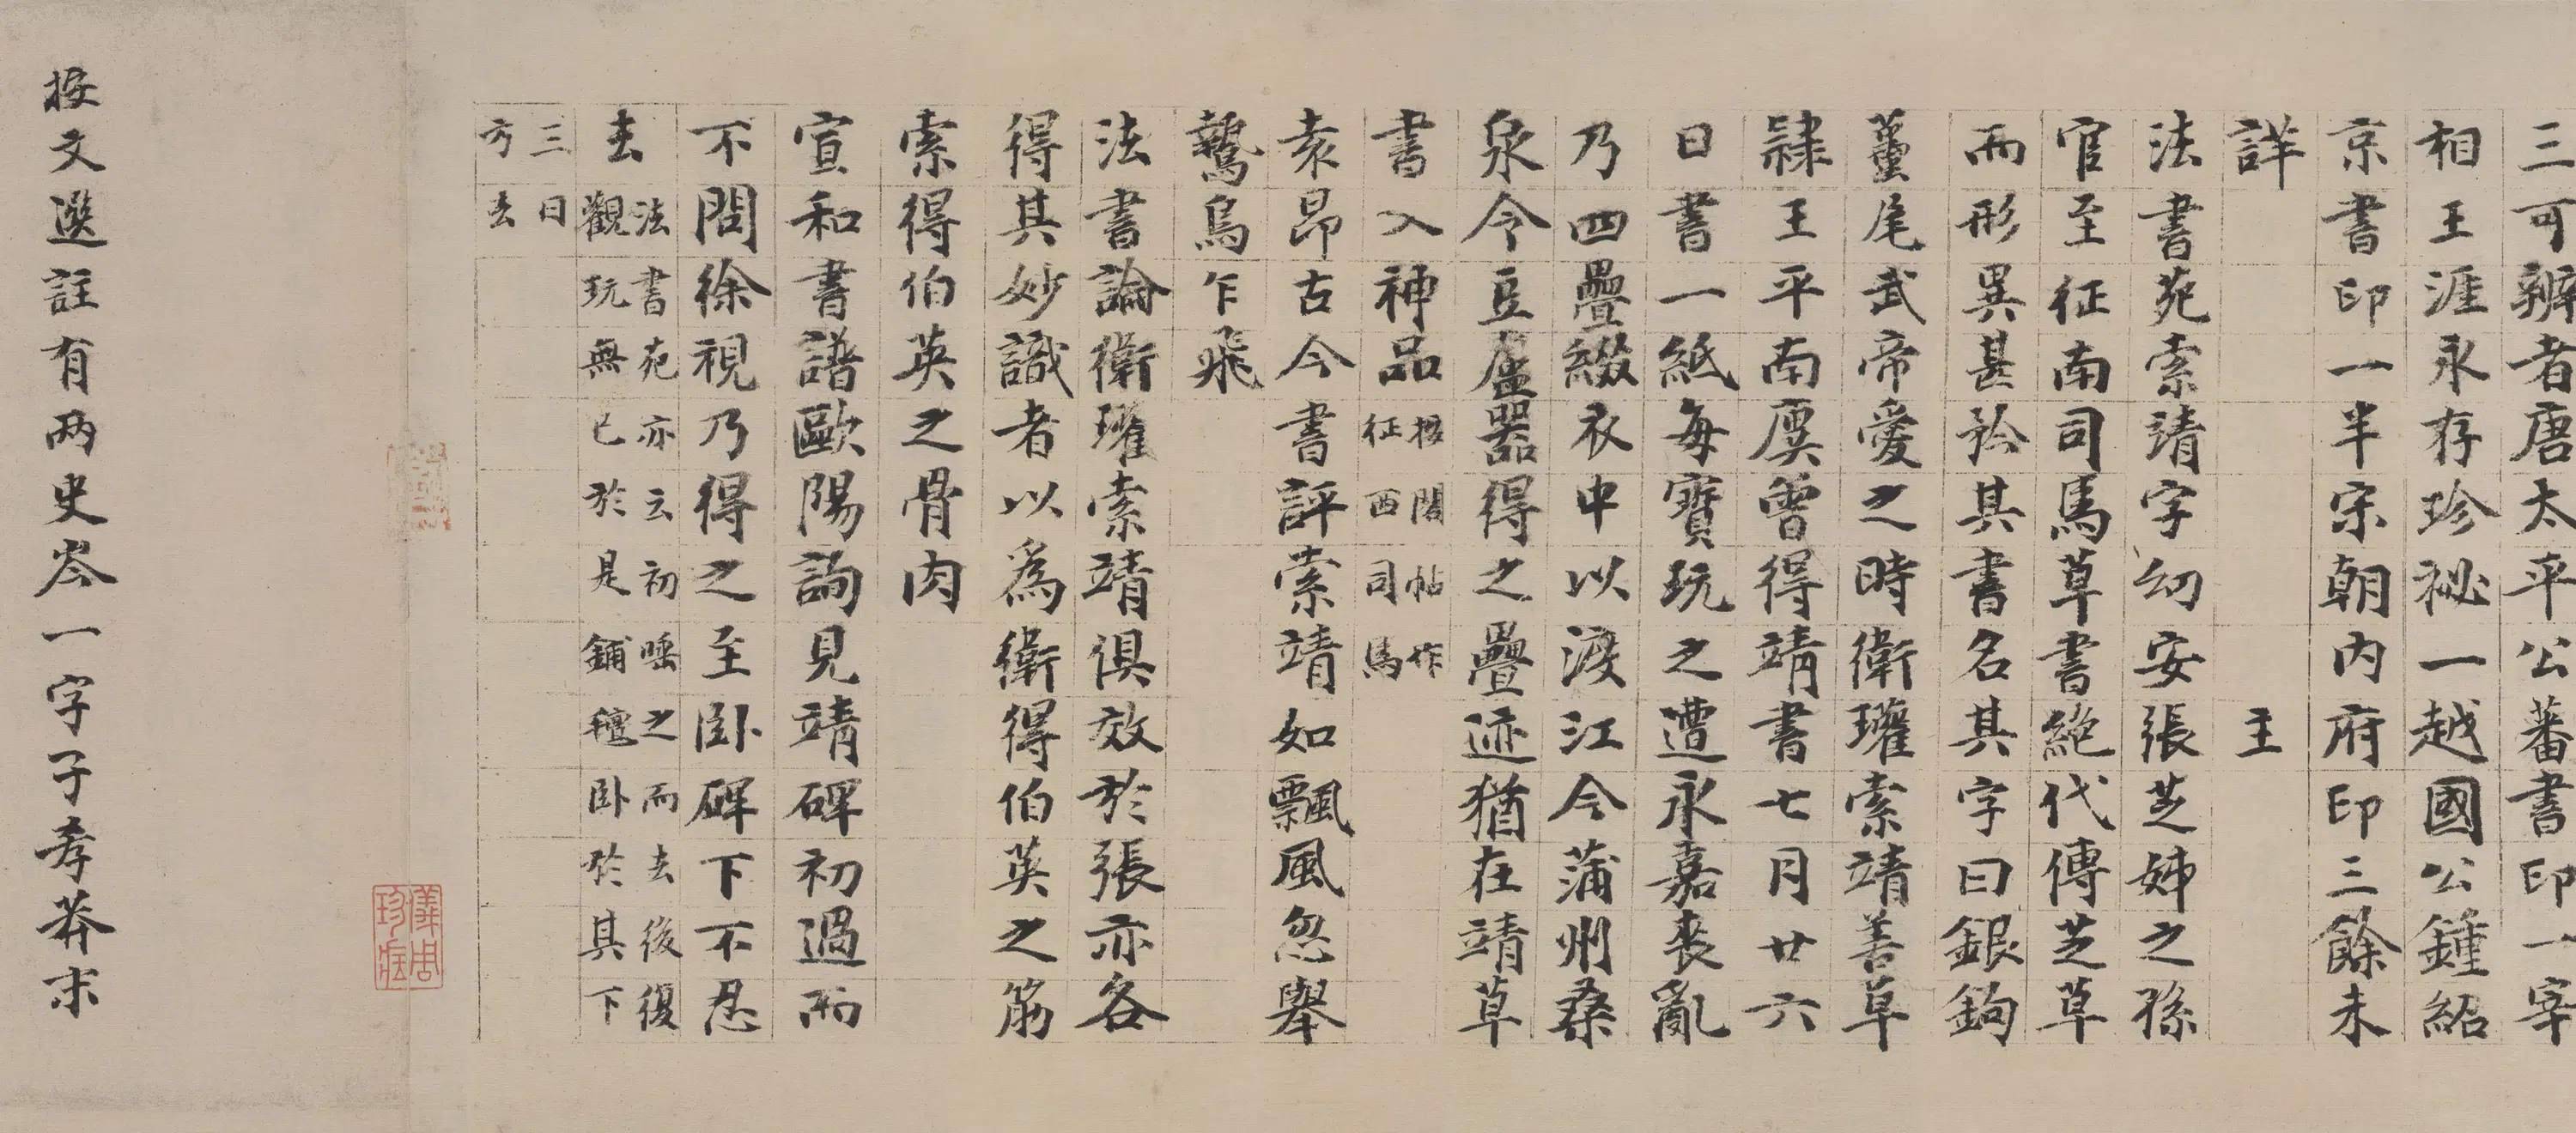 三可辨者唐太平公蕃書印一宰
相王涯永存珍祕一越國公鍾紹
京書印一半宋朝内府印三餘未
詳 主
法書苑索靖字幼安張芝姊之孫
官至征南司馬草書絶代傳芝草
而形異甚矜其書名其字曰銀鉤
蠆尾武帝愛之時衛瓘索靖善草
隷王平南廙曾得靖書七月廿六
日書一紙每寳玩之遭永嘉喪亂
乃四疊綴衣中以渡江今蒲州桑
泉令豆盧器得之疊迹猶在靖草
書入神品
按閣帖作
征西司馬
袁昂古今書評索靖如飄風忽舉
鷙鳥乍飛
法書論衛瓘索靖俱效於張亦各
得其妙識者以為衛得伯英之筋
索得伯英之骨肉
宣和書譜歐陽詢見靖碑初過而
不問徐視乃得之至卧碑下不忍
去
法書苑亦云初唾之而去後復
觀玩無已於是鋪氊卧於其下
三日
方去
按文選註有两史岑一字子孝莽末